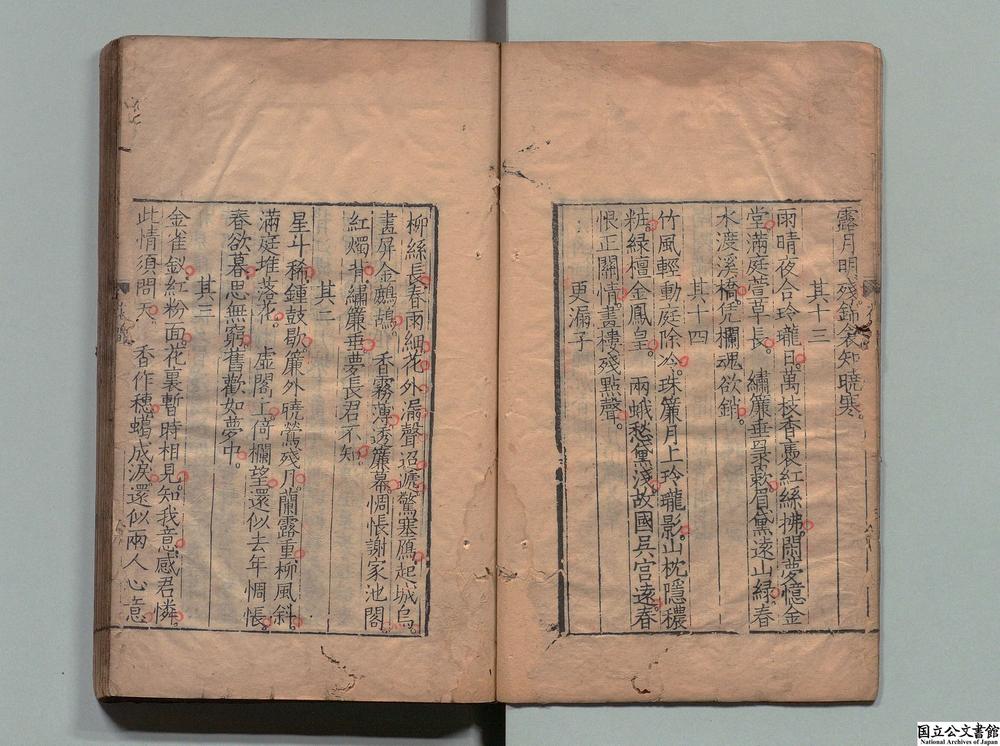 露月明殘錦衾知曉寒。
其十三
雨晴夜合玲瓏日。萬枝香裊紅絲拂。閑夢憶金
堂。滿庭萱草長。 繡簾垂㫿䔩。眉黛遠山綠。春
水渡溪橋。凭欄魂欲銷。
其十四
竹風輕動庭除冷。珠簾月上玲瓏影。山枕隱穠
粧。綠檀金鳳皇。 兩蛾愁黛淺。故國吳宮遠。春
恨正關情。畫樓殘點聲。
更漏子
柳絲長。春雨細。花外漏聲迢遞。驚塞鴈。起城烏。
畫屏金鷓鴣。 香霧薄。透簾幕。惆悵謝家池閣。
紅燭背。繡簾垂。夢長君不知。
其二
星斗稀。鍾鼓歇。簾外曉鶯殘月。蘭露重。柳風斜。
滿庭堆落花。 虛閣上。倚欄望。還似去年惆悵。
春欲暮。思無窮。舊歡如夢中。
其三
金雀釵。紅粉面。花裏暫時相見。知我意。感君憐。
此情須問天。 香作穗。蠟成淚。還似兩人心意。
国立公文書館
National Archives of Japan